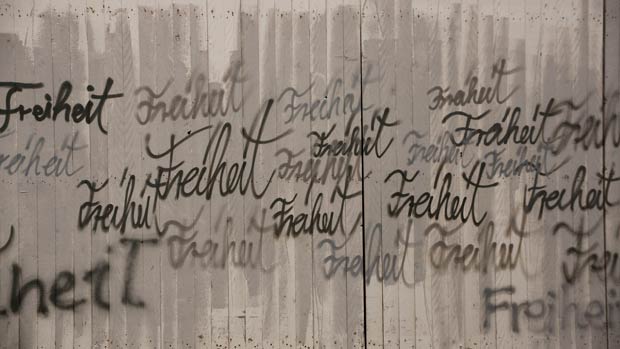 Freiheit Freiheit Freiheit Freiheit
Freiheit Freiheit Freiheit
reiheit Freiheit Freiheit Freiheit Freiheit
Freiheit Freiheit Freiheit Freiheit
Freiheit Freiheit Freiheit Frei
heit Freihei